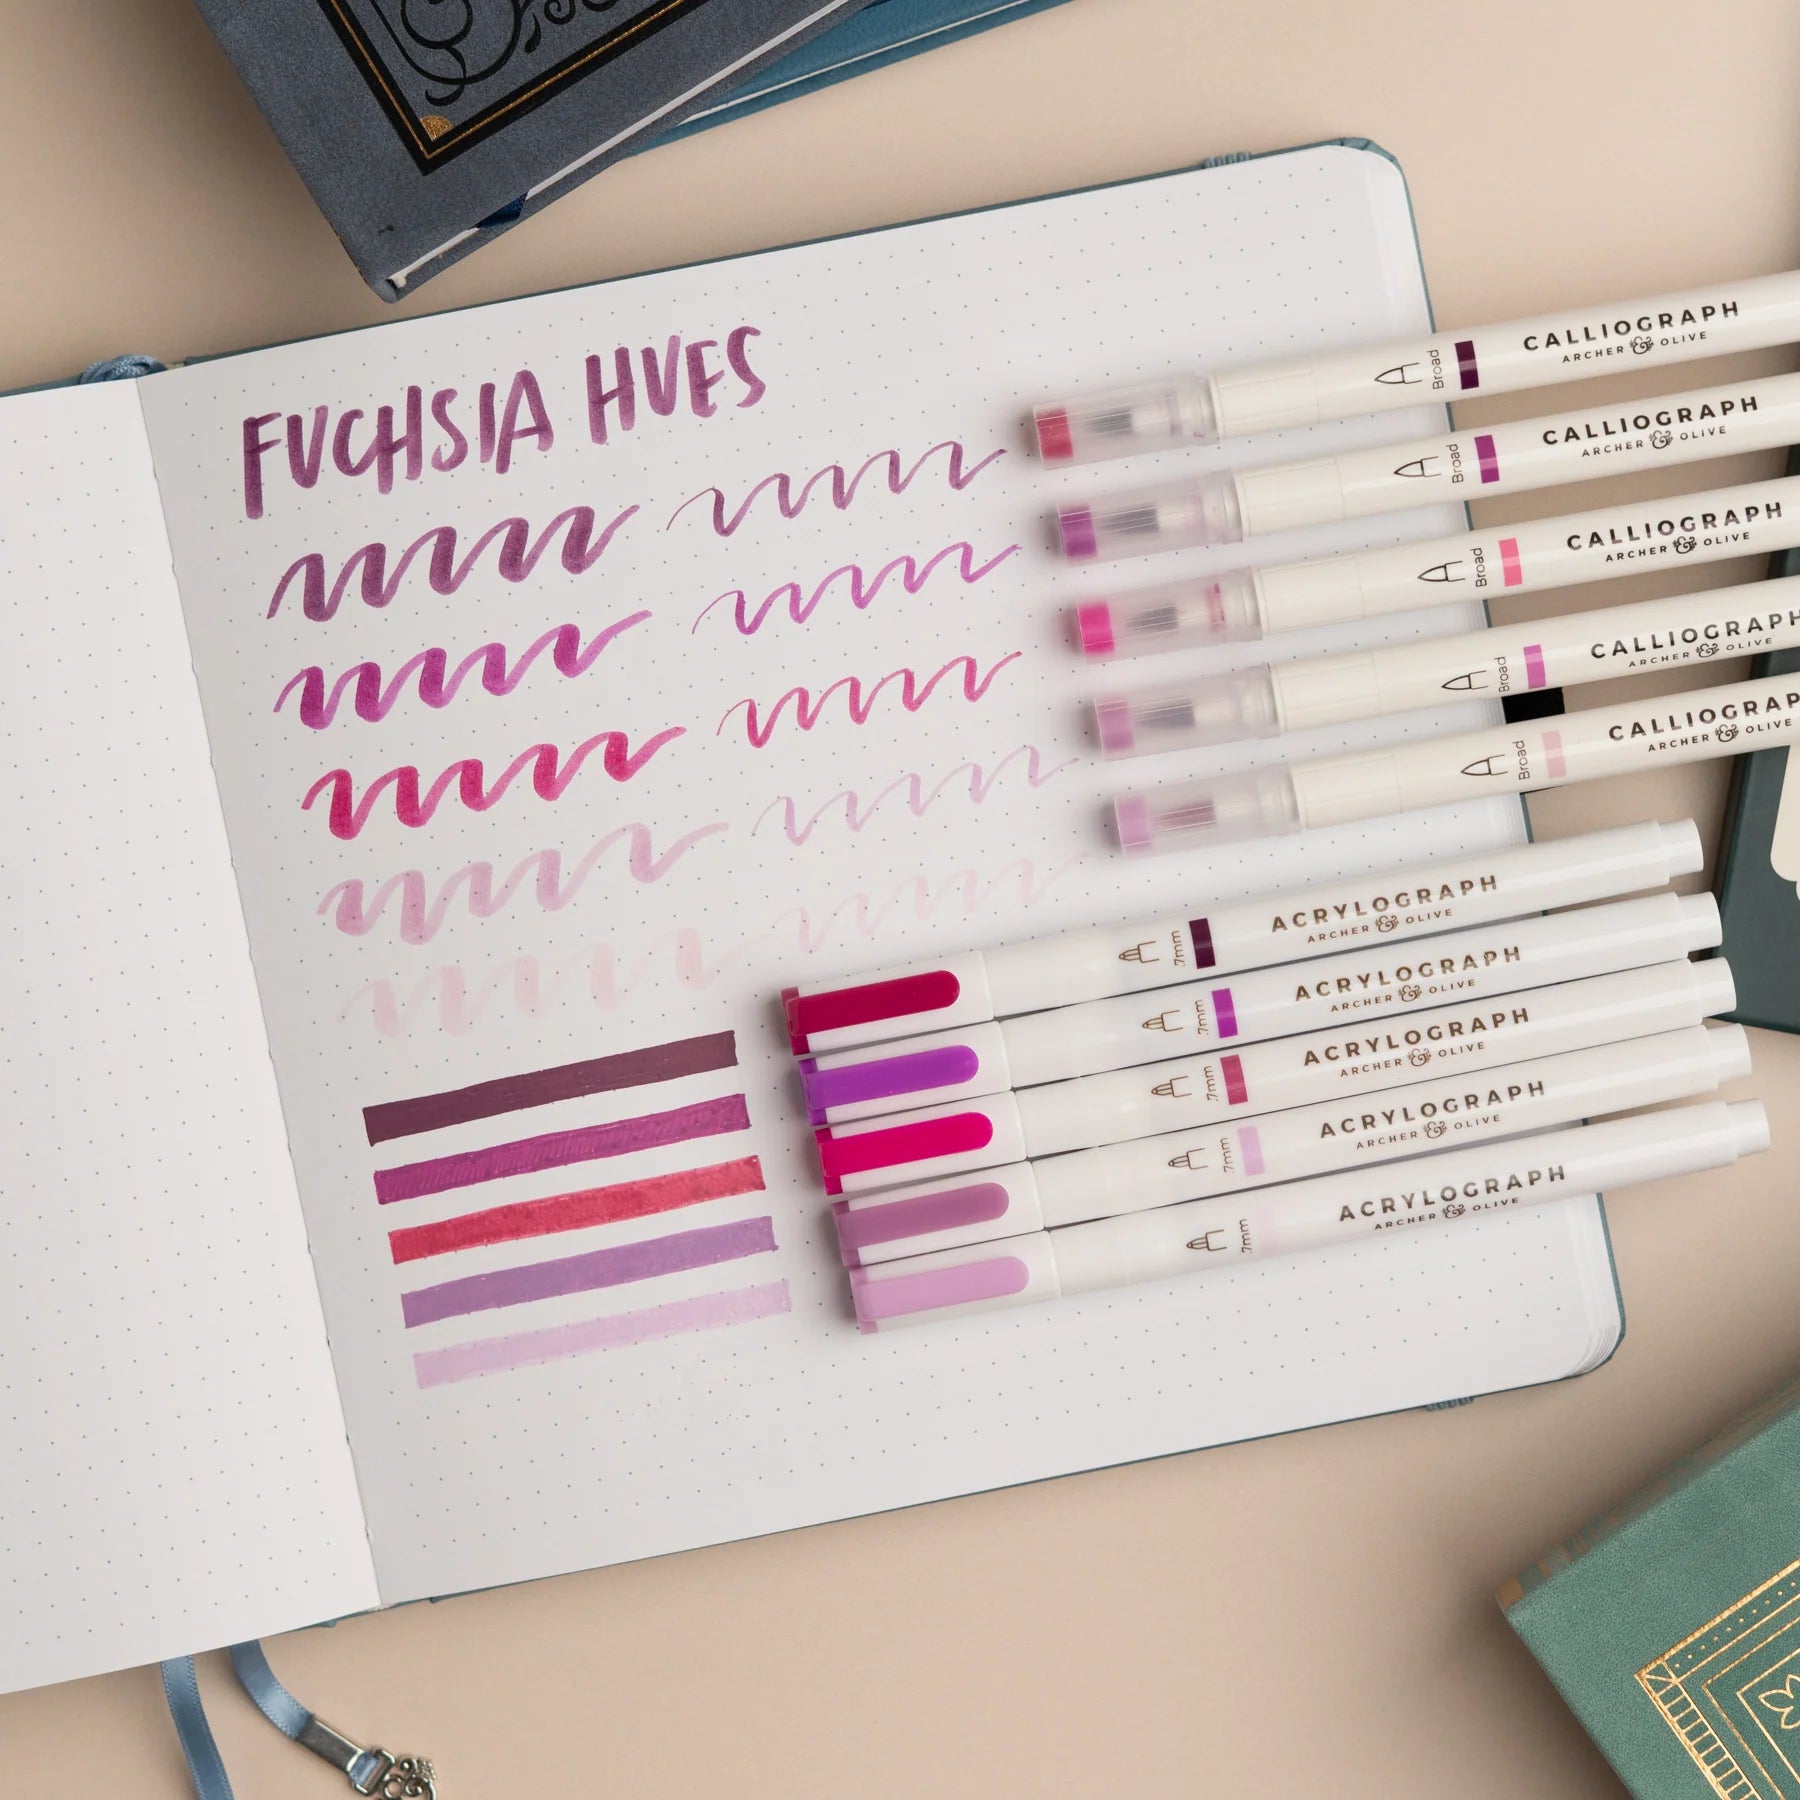 FUCHSIA HUES
Broad
CALLIOGRAPH
ARCHER & OLIVE
Broad
CALLIOGRAPH
ARCHER & OLIVE
Broad
CALLIOGRAPH
ARCHER & OLIVE
Broad
CALLIOGRAPH
ARCHER & OLIVE
Broad
CALLIOGRAP
ARCHER & OLIVE
.7mm
ACRYLOGRAPH
ARCHER & OLIVE
.7mm
ACRYLOGRAPH
ARCHER & OLIVE
.7mm
ACRYLOGRAPH
ARCHER & OLIVE
.7mm
ACRYLOGRAPH
ARCHER & OLIVE
.7mm
ACRYLOGRAPH
ARCHER & OLIVE